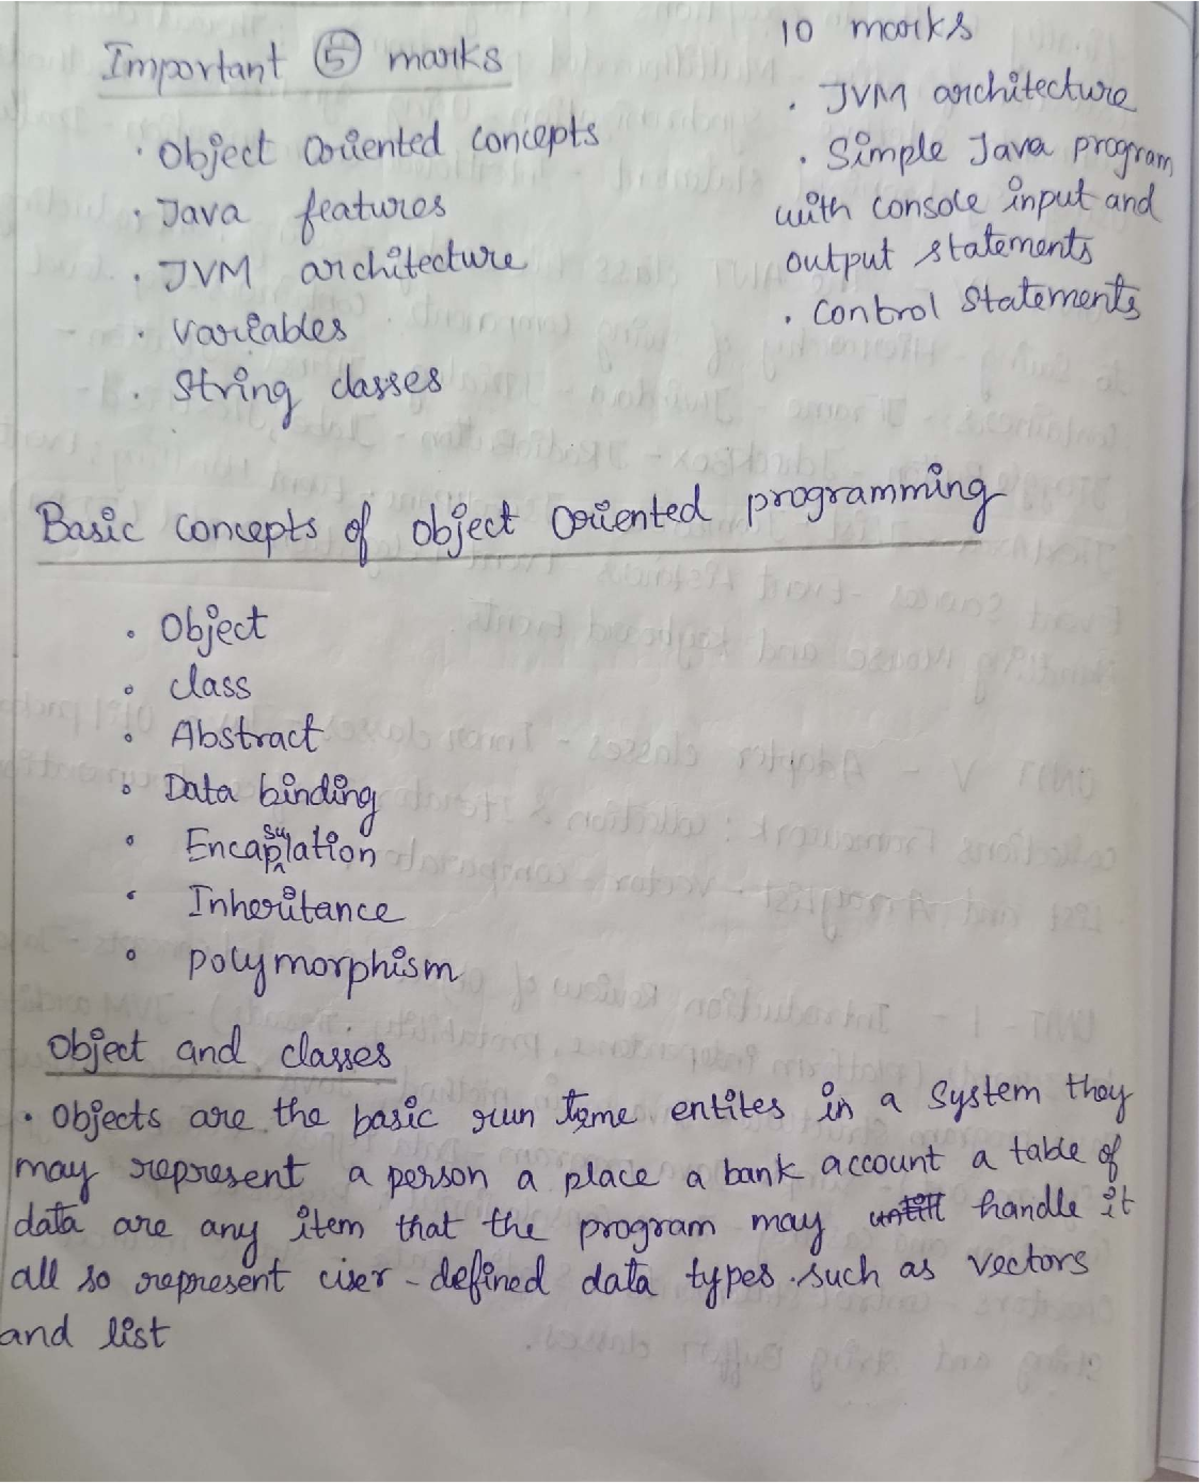 Important 5 marks
· Object Oriented Concepts
· Java features
· JVM architecture
· variables
· String classes
10 marks
· JVM architecture
· Simple Java program
with console input and
output statements
· control statements
Basic concepts of object oriented programming
· Object
· class
· Abstract
· Data binding
· Encapsulation
· Inheritance
· polymorphism
Object and classes
· Objects are the basic run time entites in a system they
may represent a person a place a bank account a table of
data are any item that the program may handle it
all so represent user-defined data types. such as vectors
and list